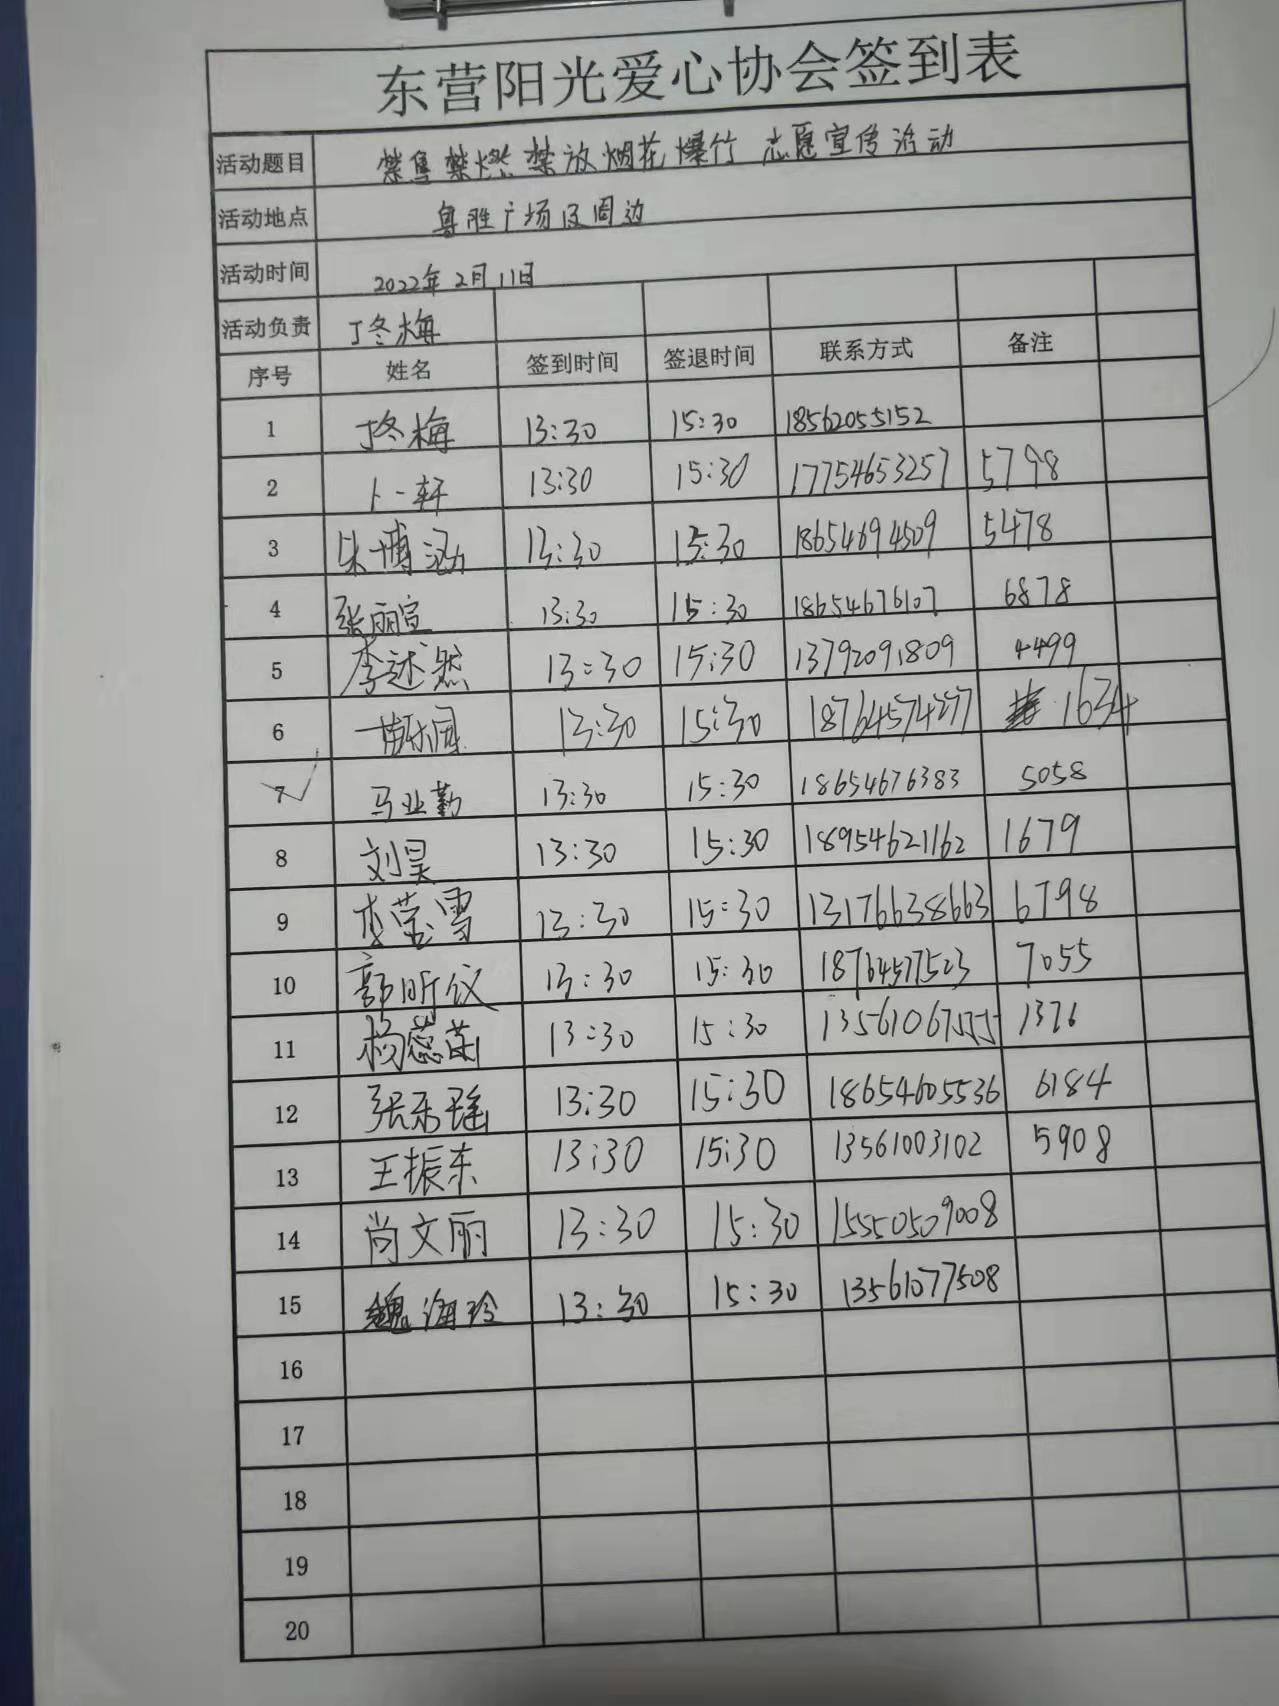 东营阳光爱心协会签到表
活动题目 禁售禁燃禁放烟花爆竹 志愿宣传活动
活动地点 粤胜广场及周边
活动时间 2022年2月11日
活动负责 丁冬梅
序号 姓名 签到时间 签退时间 联系方式 备注
1 丁冬梅 13:30 15:30 18562055152
2 卜一轩 13:30 15:30 17754653257 5798
3 朱博涵 13:30 15:30 18654694509 5478
4 张丽宣 13:30 15:30 18654676107 6878
5 李述然 13:30 15:30 13792091809 4499
6 13:30 15:30 18764574277 1634
7 马业勤 13:30 15:30 18654676383 5058
8 刘昊 13:30 15:30 18954621162 1679
9 李莹雪 13:30 15:30 13176638663 6798
10 郭昕仪 13:30 15:30 18764577523 7055
11 杨蕊茜 13:30 15:30 13561067555 1376
12 张乐瑶 13:30 15:30 18654605536 6184
13 王振东 13:30 15:30 13561003102 5908
14 尚文丽 13:30 15:30 15550509008
15 魏海玲 13:30 15:30 13561077508
16
17
18
19
20